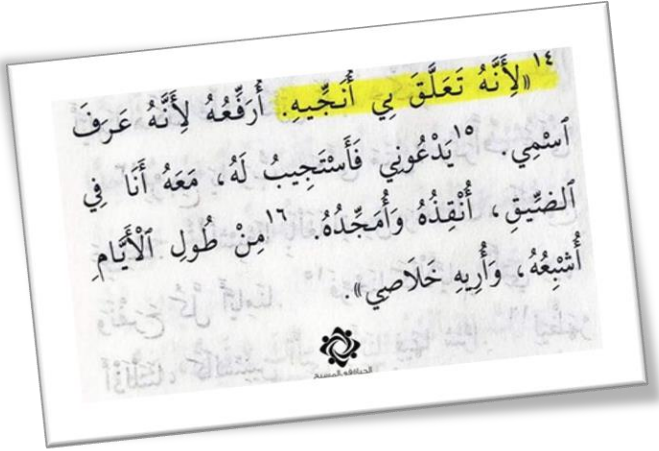 ١٤ «لِأَنَّهُ تَعَلَّقَ بِي أُنَجِّيهِ. أُرَفِّعُهُ لِأَنَّهُ عَرَفَ
ٱسْمِي. ١٥ يَدْعُونِي فَأَسْتَجِيبُ لَهُ، مَعَهُ أَنَا فِي
ٱلضِّيقِ، أُنْقِذُهُ وَأُمَجِّدُهُ. ١٦ مِنْ طُولِ ٱلْأَيَّامِ
أُشْبِعُهُ، وَأُرِيهِ خَلَاصِي».